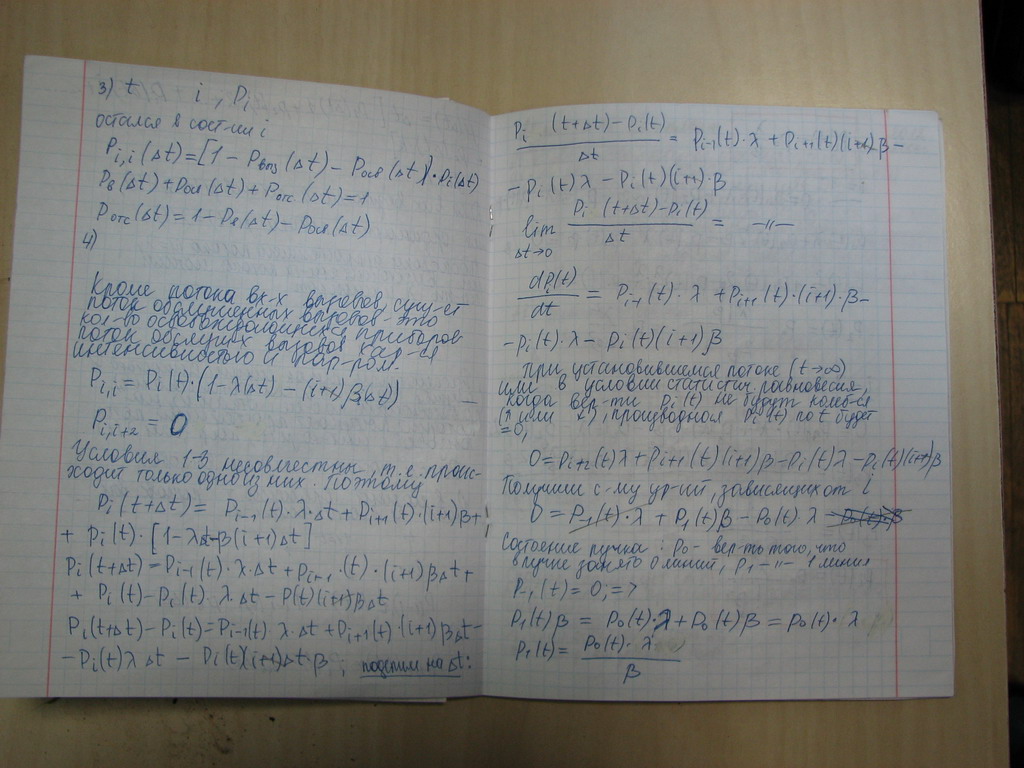 3) t i , Pi
остался в сост-ии i
Pi,i(Δt)=[1 – Pвыз(Δt) – Pосв(Δt)]·Pi(Δt)
Pв(Δt)+Pосв(Δt)+Pотс(Δt)=1
Pотс(Δt)=1–Pв(Δt)–Pосв(Δt)
4)
Кроме потока вх-х вызовов, сущ-ет
поток обслуженных вызовов – это
кол-во освобождающихся приборов
поток обслуж-х вызовов
интенсивностью и пар-ром.
Pi,i = Pi(t)·(1–λ(Δt) – (i+1)β(Δt))
Pi,i+2 = 0
Условия 1-3 несовместны, т.е. проис-
ходит только одно из них. Поэтому
Pi(t+Δt)= Pi-1(t)·λ·Δt+Pi+1(t)·(i+1)β+
+ Pi(t)·[1–λΔt–β(i+1)Δt]
Pi(t+Δt)=Pi-1(t)·λ·Δt+Pi+1·(t)·(i+1)βΔt+
+ Pi(t)–Pi(t)·λΔt–P(t)(i+1)βΔt
Pi(t+Δt)–Pi(t)=Pi-1(t)·λΔt+Pi+1(t)·(i+1)βΔt–
–Pi(t)λΔt – Pi(t)(i+1)Δt·β ; поделим на Δt:
Pi (t+Δt)–Pi(t) / Δt = Pi-1(t)·λ+Pi+1(t)(i+1)β–
–Pi(t)λ–Pi(t)(i+1)·β
lim Δt→0 Pi (t+Δt)–Pi(t) / Δt = –"–
dPi(t) / dt = Pi-1(t)·λ+Pi+1(t)·(i+1)·β–
–Pi(t)·λ–Pi(t)(i+1)β
при установившемся потоке (t→∞)
или в условии статистич. равновесия,
когда вер-ти Pi(t) не будут колеб-ся
(↑ или ↓), производная Pi(t) по t будет
=0,
0=Pi+2(t)λ+Pi+1(t)(i+1)β–Pi(t)λ–Pi(t)(i+1)β
Получим с-му ур-ий, зависящих от i
0=P-1(t)·λ+P1(t)β–P0(t)·λ
Состояние пучка: P0 – вер-ть того, что
в пучке занято 0 линий, P1 –"– 1 линия
P-1(t)=0; =>
P1(t)β = P0(t)·λ+P0(t)β = P0(t)·λ
P1(t)= P0(t)·λ / β